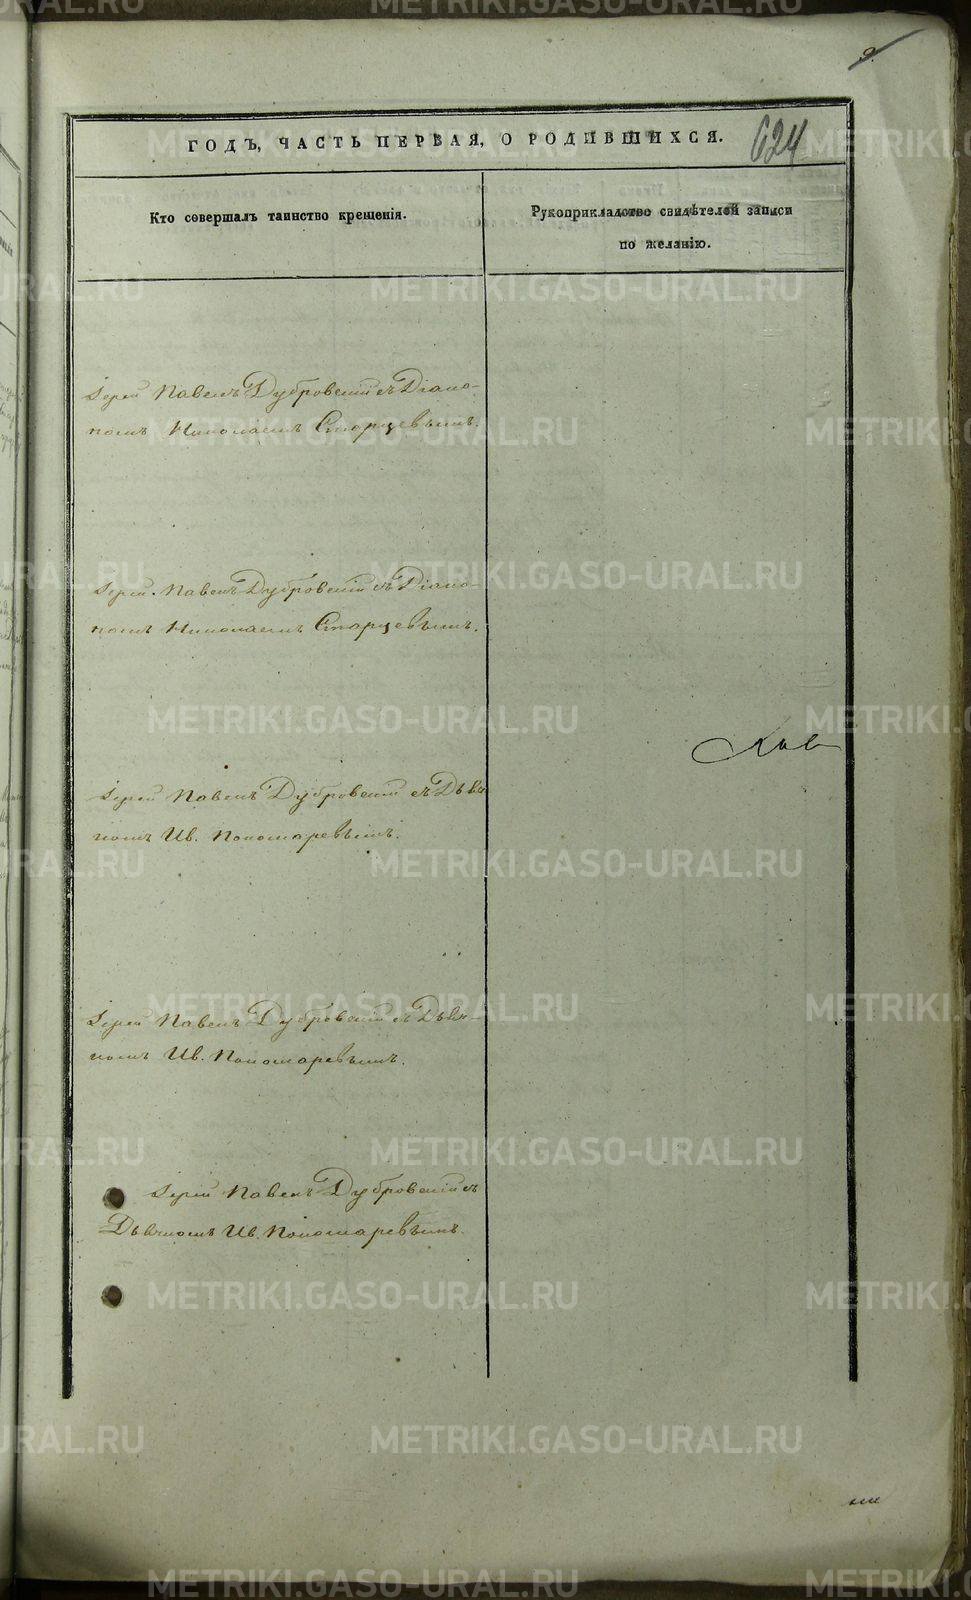 9.
ГОДЪ, ЧАСТЬ ПЕРВАЯ, О РОДИВШИХСЯ.
624
Кто совершалъ таинство крещенія.
Рукоприкладство свидѣтелей записи
по желанію.
Іерей Павелъ Дубровскій съ Діако-
номъ Николаемъ Старцевымъ.
Іерей Павелъ Дубровскій съ Діако-
номъ Николаемъ Старцевымъ.
Іерей Павелъ Дубровскій съ Дьяч
комъ Ив. Пономаревымъ.
Іерей Павелъ Дубровскій съ Дьяч-
комъ Ив. Пономаревымъ.
Іерей Павелъ Дубровскій съ
Дьячкомъ Ив. Пономаревымъ.
METRIKI.GASO-URAL.RU